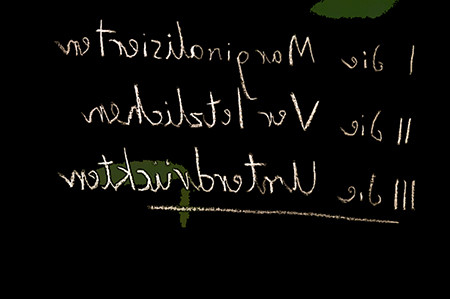 I die Marginalisierten
II die Verletzlichen
III die Unterdrückten